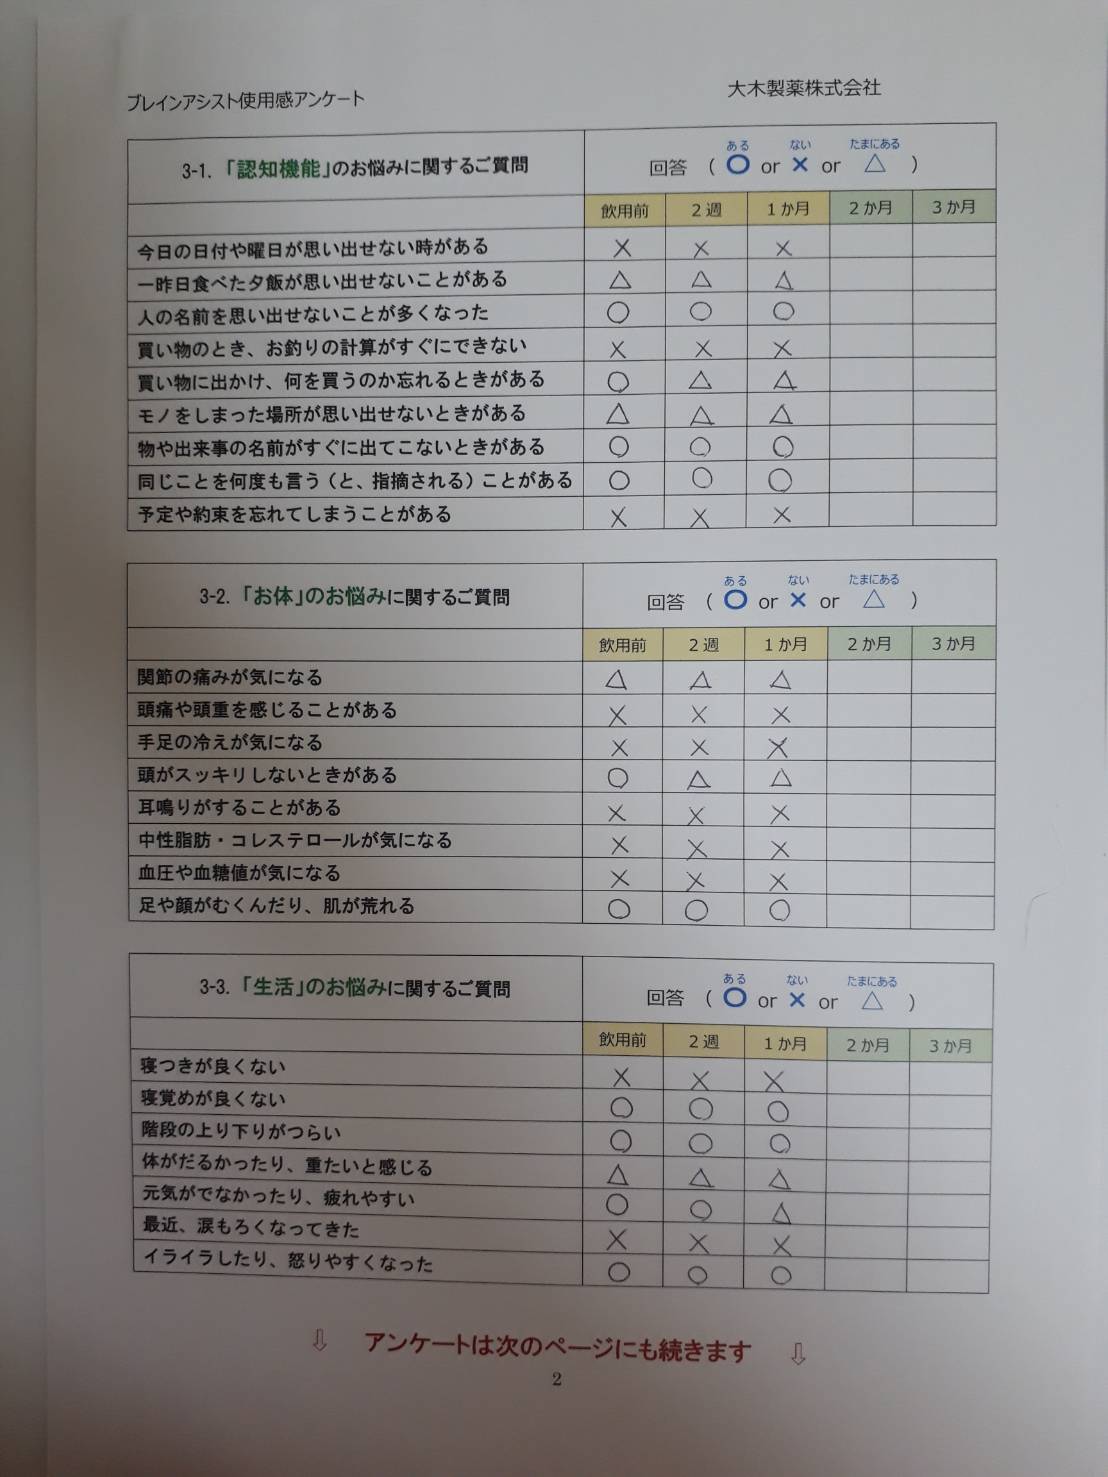 ブレインアシスト使用感アンケート 大木製薬株式会社
3-1.「認知機能」のお悩みに関するご質問 回答 ( ある ○ or ない × or たまにある △ )
飲用前 2週 1か月 2か月 3か月
今日の日付や曜日が思い出せない時がある × × ×
一昨日食べた夕飯が思い出せないことがある △ △ △
人の名前を思い出せないことが多くなった ○ ○ ○
買い物のとき、お釣りの計算がすぐにできない × × ×
買い物に出かけ、何を買うのか忘れるときがある ○ △ △
モノをしまった場所が思い出せないときがある △ △ △
物や出来事の名前がすぐに出てこないときがある ○ ○ ○
同じことを何度も言う(と、指摘される)ことがある ○ ○ ○
予定や約束を忘れてしまうことがある × × ×
3-2.「お体」のお悩みに関するご質問 回答 ( ある ○ or ない × or たまにある △ )
飲用前 2週 1か月 2か月 3か月
関節の痛みが気になる △ △ △
頭痛や頭重を感じることがある × × ×
手足の冷えが気になる × × ×
頭がスッキリしないときがある ○ △ △
耳鳴りがすることがある × × ×
中性脂肪・コレステロールが気になる × × ×
血圧や血糖値が気になる × × ×
足や顔がむくんだり、肌が荒れる ○ ○ ○
3-3.「生活」のお悩みに関するご質問 回答 ( ある ○ or ない × or たまにある △ )
飲用前 2週 1か月 2か月 3か月
寝つきが良くない × × ×
寝覚めが良くない ○ ○ ○
階段の上り下りがつらい ○ ○ ○
体がだるかったり、重たいと感じる △ △ △
元気がでなかったり、疲れやすい ○ ○ △
最近、涙もろくなってきた × × ×
イライラしたり、怒りやすくなった ○ ○ ○
⇩ アンケートは次のページにも続きます ⇩
2